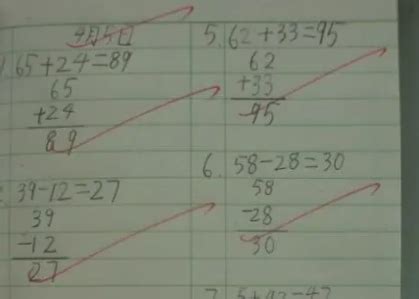 4月5日
65+24=89
65
+24
89
39-12=27
39
-12
27
5. 62+33=95
62
+33
95
6. 58-28=30
58
-28
30